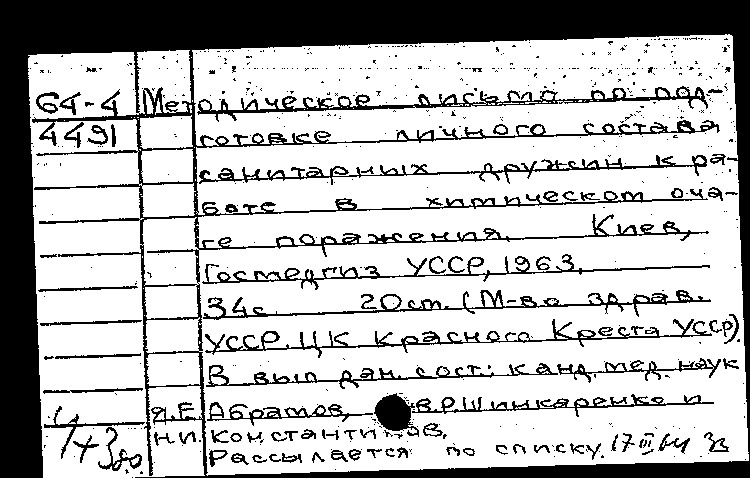 64-4 Методическое письмо по под-
4491 готовке личного состава
санитарных дружин к ра-
боте в химическом оча-
ге поражения. Киев,
Госмедгиз УССР, 1963.
34с 20ст. (М-во здрав.
УССР. ЦК Красного Креста УССР)
В вып дан. сост.: канд. мед. наук
Я.Е. Абрамов, В.Р. Шинкаренко и
Н.И. Константинов.
Рассылается по списку. 17 III 64